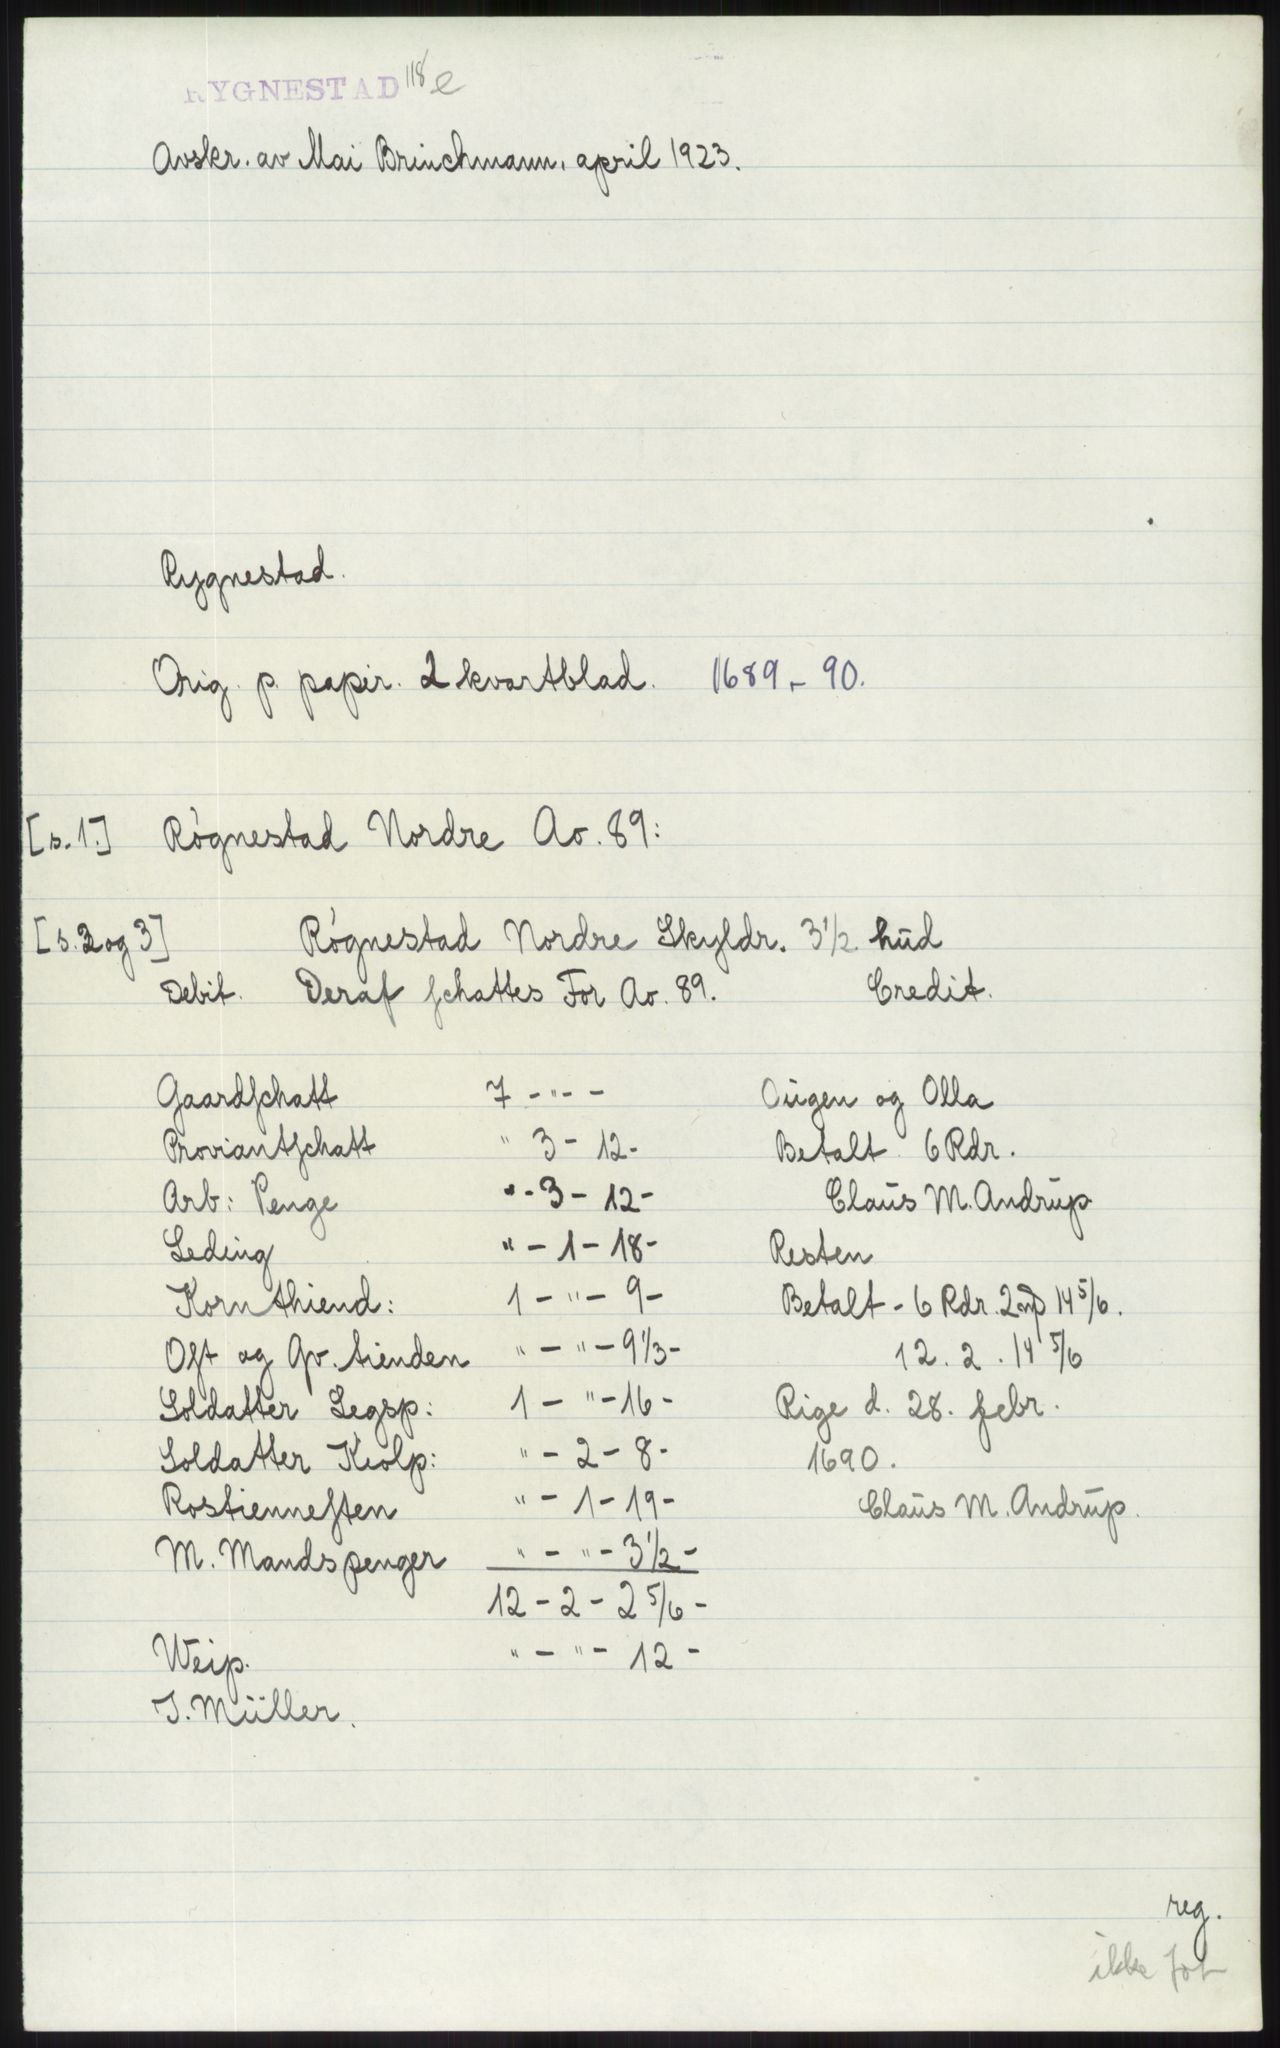 RYGNESTAD 118 e
Avskr. av Mai Brinchmann, april 1923.
Rygnestad.
Orig. p. papir. 2 kvartblad. 1689 - 90.
[s. 1.] Rógnestad Nordre Ao. 89:
[s. 2 og 3] Rógnestad Nordre Skyldr. 3 1/2 hud
Debit. Deraf schattes For Ao. 89. Credit.
Gaardschatt 7 - " - - Ougen og Olla
Proviantschatt " 3 - 12 - Betalt 6 Rdr.
Arb: Penge " - 3 - 12 - Claus M. Andrup
Leding " - 1 - 18 - Resten
Korn thiend: 1 - " - 9 - Betalt - 6 Rdr. 2 mp 14 5/6.
Ost og Qv. tienden " - " - 9 1/3 - 12. 2. 14 5/6
Soldatter Legsp: 1 - " - 16 - Rige d. 28. febr.
Soldatter Kiolp: " - 2 - 8 - 1690.
Rostiennesten " - 1 - 19 - Claus M. Andrup.
M. Mandspenger " - " - 3 1/2 -
12 - 2 - 2 5/6 -
Weip. " - " - 12 -
J. Müller.
reg.
ikke fot